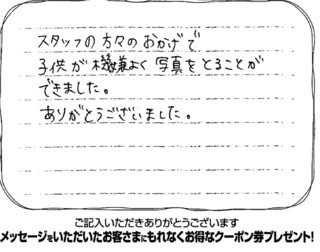 スタッフの方々のおかげで
子供が機嫌よく写真をとることが
できました。
ありがとうございました。
ご記入いただきありがとうございます
メッセージをいただいたお客さまにもれなくお得なクーポン券プレゼント!